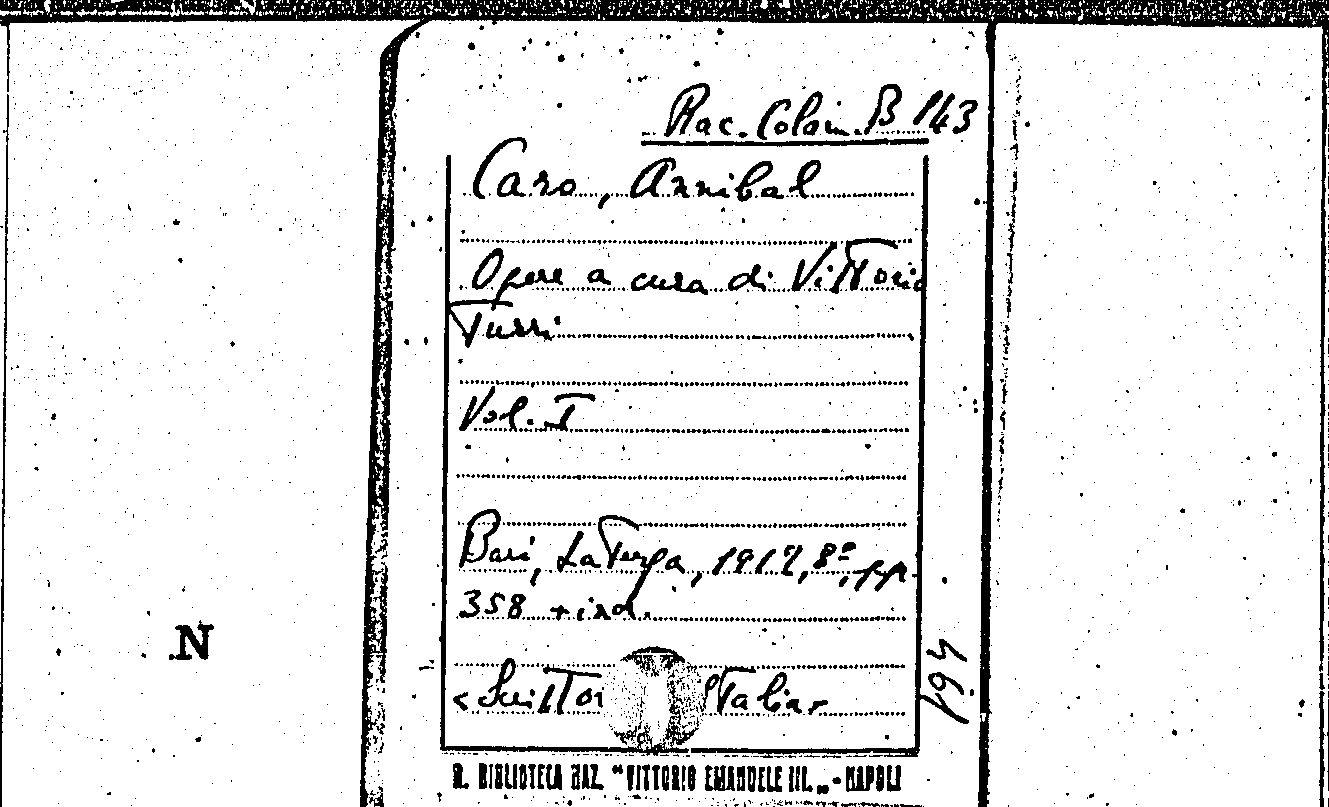 Rac. Colam. B 143
Caro, Annibal
Opere a cura di Vittorio
Turri
Vol. I
Bari, Laterza, 1912, 8º, pp.
358 + ind.
<Scrittori d'Italia>
R. BIBLIOTECA NAZ. "VITTORIO EMANUELE III." - NAPOLI
N